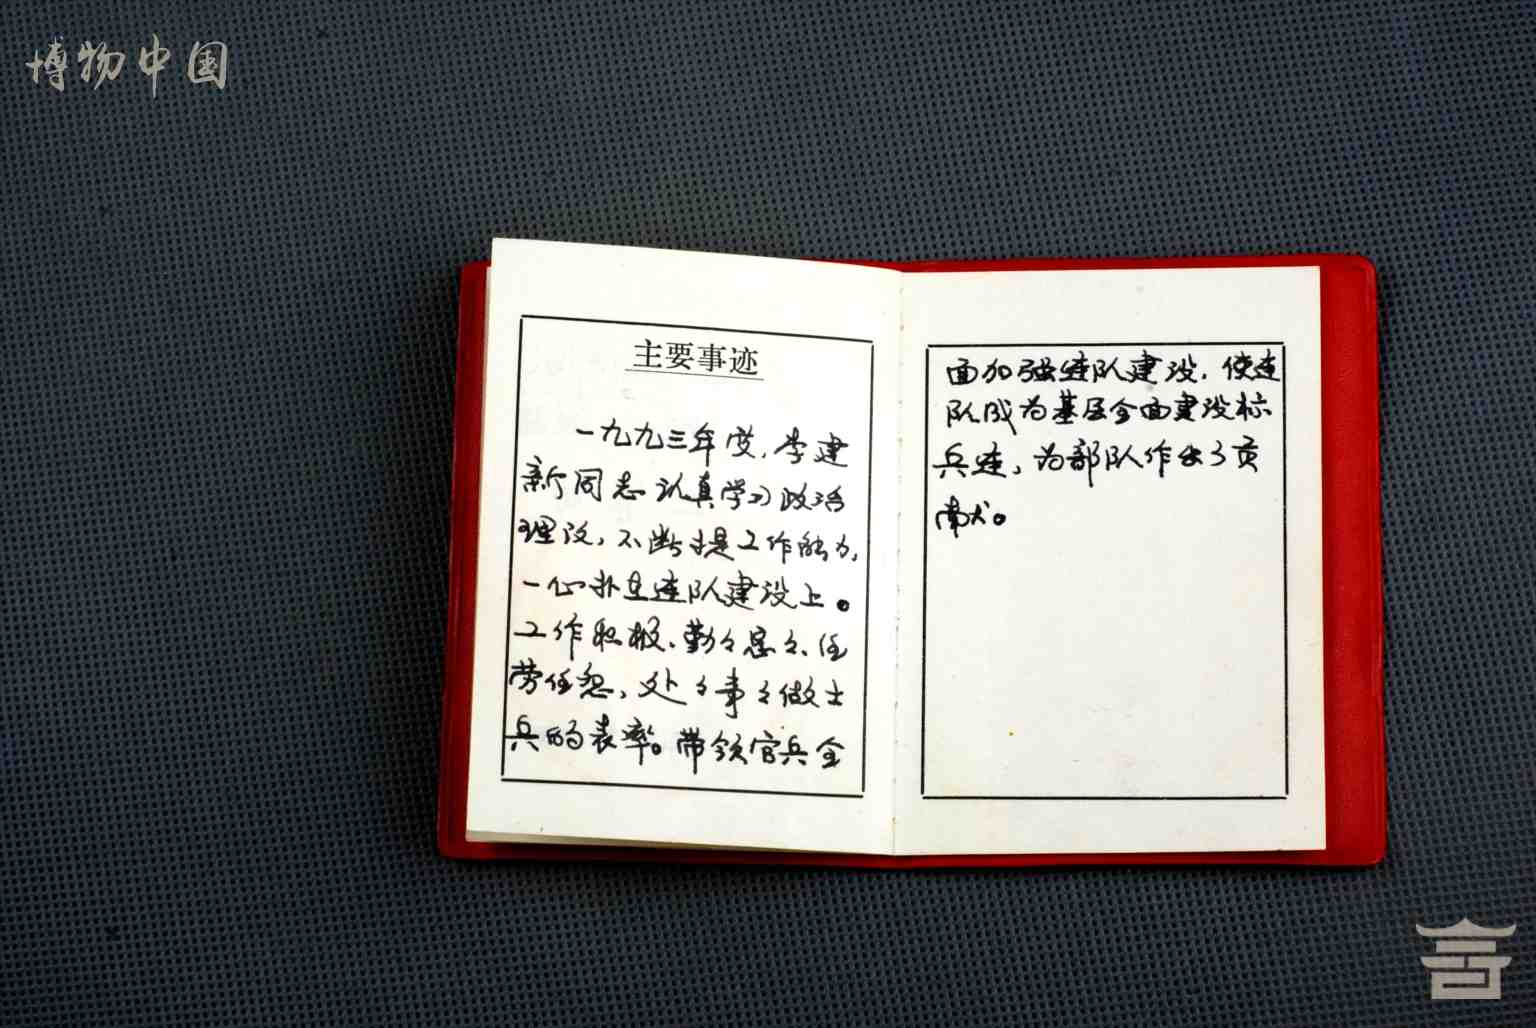 博物中国
主要事迹
一九九三年度,李建
新同志认真学习政治
理论,不断提工作能力,
一心扑在连队建设上。
工作积极、勤々恳々、任
劳任怨,处々事々做士
兵的表率。带领官兵全
面加强连队建设,使连
队成为基层全面建设标
兵连,为部队作出了贡
献。